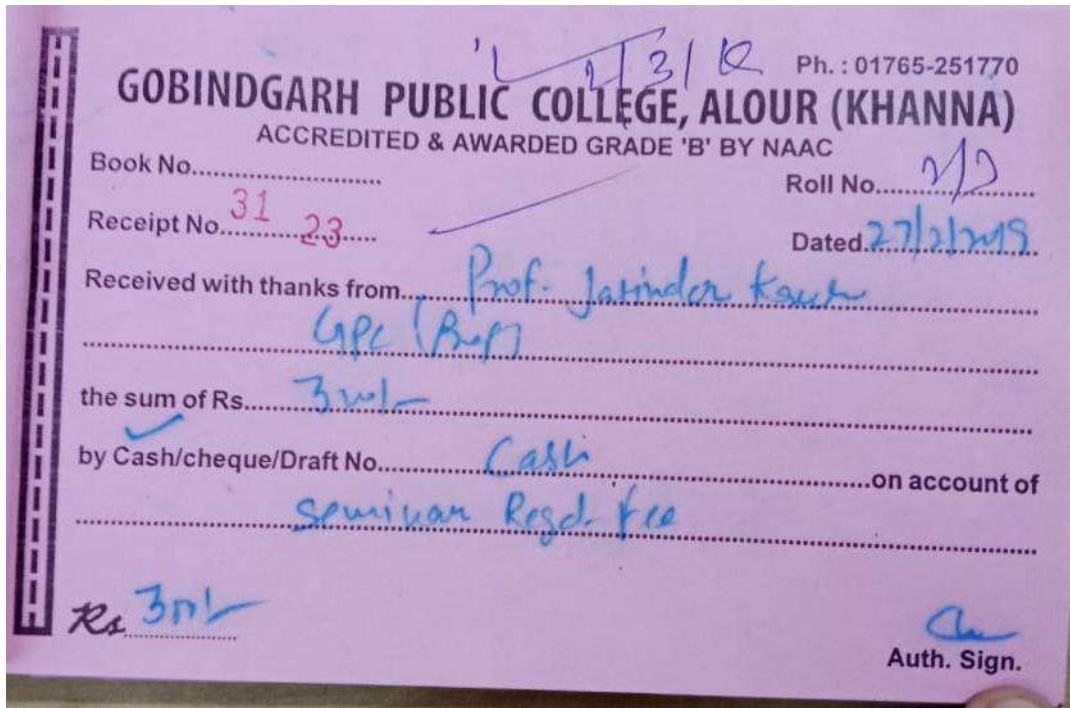 Ph. : 01765-251770
GOBINDGARH PUBLIC COLLEGE, ALOUR (KHANNA)
ACCREDITED & AWARDED GRADE 'B' BY NAAC
Book No.
Roll No.
Receipt No. 31 23
Dated 27/2/2019
Received with thanks from Prof. Jatinder Kaur
GPC
the sum of Rs. 300/-
by Cash/cheque/Draft No. Cash on account of
seminar Regd. fee
Rs 300/-
Auth. Sign.